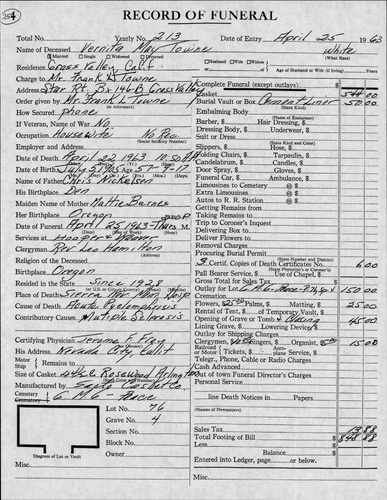 254
RECORD OF FUNERAL
Total No. Yearly No. 213 Date of Entry April 25 1963
Name of Deceased Vernita May Towne White
Married Single Widowed Divorced (What Race)
Residence Grass Valley, Calif Husband Wife Widow
or Age of Husband or Wife (if living) Years
Charge to Mr. Frank H Towne
Address Star Rt. Bx 146-B Grass Valley
Order given by Mr. Frank L Towne
(or Informant)
How Secured phone
If Veteran, War of No
Occupation Housewife No Rec
(Social Security Number)
Employer and Address
Date of Death April 22 1963 10:50 A M
Date of Birth July 5 1905 57-9-17
Name of Father Chris Nickelsen
His Birthplace Den
Maiden Name of Mother Mattie Barnes
Her Birthplace Oregon
Date of Funeral April 25 1963-Thurs M.
Services at Hooper & Weaver
Clergyman Rev Leo Hamilton
Religion of the Deceased
Birthplace Oregon
Resided in the State Since 1928
Place of Death Sierra Nev Mem Hosp
Cause of Death Acute Pyelonephritis
Contributory Causes Multiple Sclerosis
Certifying Physician Jerome F Fray
His Address Nevada City, Calif
Motor Ship Remains to
Size of Casket 4466 Rosewood Arlington
Manufactured by Eagle Casket Co.
Cemetery
Lot No. 76
Grave No. 4
Section No.
Block No.
Owner
Diagram of Lot or Vault
Misc.
Complete Funeral (except outlays) $
Casket 544.00
Burial Vault or Box Cement Liner 50.00
(State Kind)
Embalming Body
(Name of Embalmer)
Barber, $ Hair Dressing, $
Dressing Body, $ Underwear, $
Suit or Dress,
(State Kind and Color)
Slippers, $ Hose, $
Folding Chairs, $ Tarpaulin, $
Candelabrum, $ Candles, $
Door Spray, $ Gloves, $
Funeral Car, $ Ambulance, $
Limousines to Cemetery @ $
Extra Limousines @ $
Autos to R. R. Station @ $
Getting Remains from
Taking Remains to
Trip to Coroner's Inquest
Delivering Box to
Deliver Flowers to
Removal Charges
Procuring Burial Permit
(State Number and District)
3 Certif. Copies of Death Certificates No. 6.00
(State Physician's or Coroner's)
Pall Bearer Service, $ Use of Chapel, $
Gross Total for Sales Tax $
Outlay for Lot 150.00
Flowers, $25.00 Palms, $ Matting, $ 25.00
Rental of Tent, $ of Temporary Vault, $
Opening of Grave or Tomb & Closing 45.00
Lining Grave, $ Lowering Device, $
Outlay for Shipping Charges
Clergyman, $10 Singers, $ Organist, $5 15.00
Railroad or Motor Tickets, $ Aeroplane Service, $
Telegr., Phone, Cable or Radio Charges
Cash Advanced
Out of town Funeral Director's Charges
Personal Service
line Death Notices in Papers
(Names of Newspapers)
Sales Tax 13.88
Total Footing of Bill $ 848.88
Less $
Balance $
Entered into Ledger, page or below.
Misc.